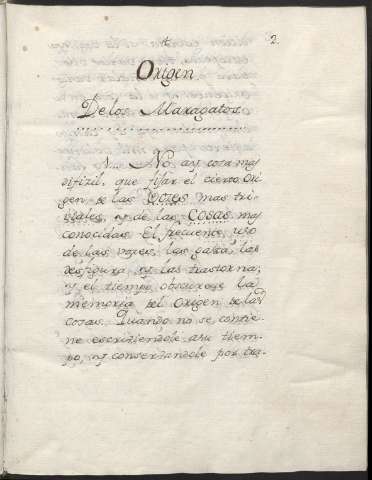 2.
Origen
De los Maragatos.
N... No ay cosa mas
difizil, que fijar el cierto Ori-
gen de las Vozes mas tri-
viales, y de las Cosas mas
conocidas. El frecuente uso
de las vozes, las gasta, las
desfigura, y las trastorna;
y el tiempo obscureze la
memoria del Origen de las
cosas. Quando no se contie-
ne escriviendole a su tiem-
po, y conservandole por tra-